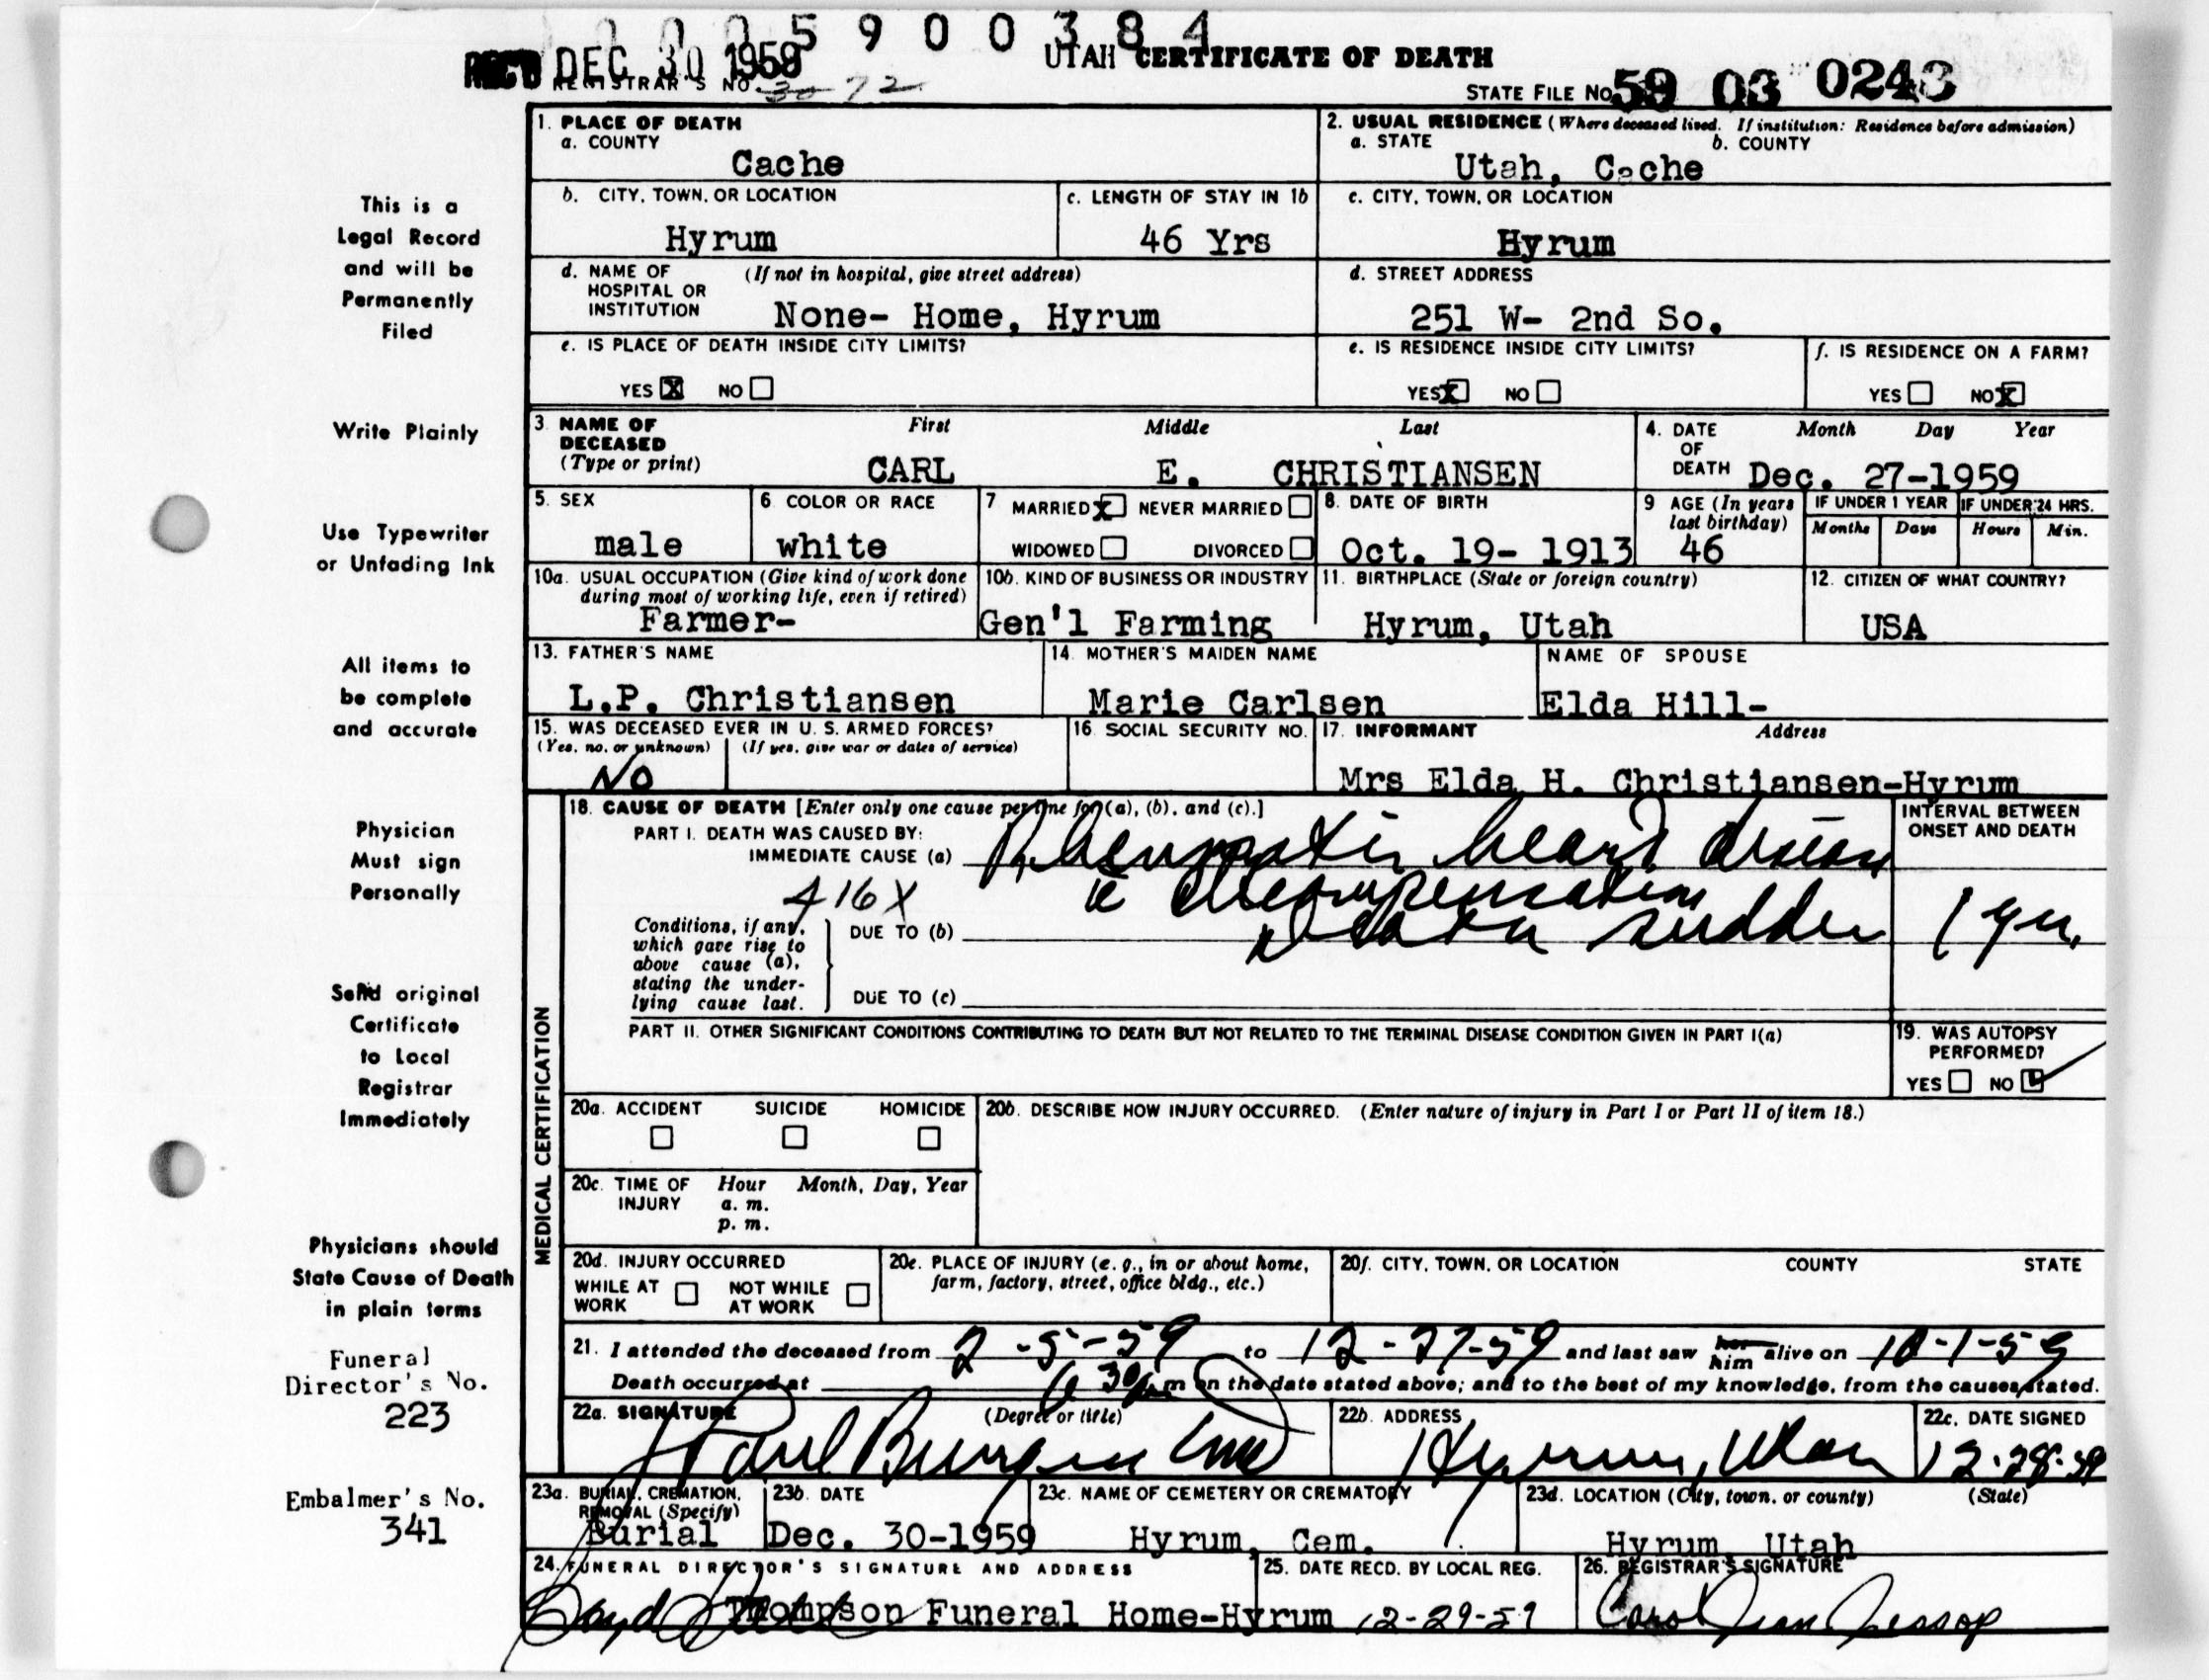 0 0 0 5 9 0 0 3 8 4
REC'D DEC 30 1959
UTAH CERTIFICATE OF DEATH
REGISTRAR'S NO. 30 72
STATE FILE No. 59 03 0243
1. PLACE OF DEATH
a. COUNTY
Cache
2. USUAL RESIDENCE (Where deceased lived. If institution: Residence before admission)
a. STATE b. COUNTY
Utah, Cache
b. CITY, TOWN, OR LOCATION
Hyrum
c. LENGTH OF STAY IN 1b
46 Yrs
c. CITY, TOWN, OR LOCATION
Hyrum
d. NAME OF HOSPITAL OR INSTITUTION (If not in hospital, give street address)
None- Home, Hyrum
d. STREET ADDRESS
251 W- 2nd So.
e. IS PLACE OF DEATH INSIDE CITY LIMITS?
YES X NO
e. IS RESIDENCE INSIDE CITY LIMITS?
YES X NO
f. IS RESIDENCE ON A FARM?
YES NO X
3 NAME OF DECEASED (Type or print)
First Middle Last
CARL E. CHRISTIANSEN
4. DATE OF DEATH
Month Day Year
Dec. 27-1959
5. SEX
male
6 COLOR OR RACE
white
7 MARRIED X NEVER MARRIED
WIDOWED DIVORCED
8. DATE OF BIRTH
Oct. 19- 1913
9 AGE (In years last birthday)
46
IF UNDER 1 YEAR
Months Days
IF UNDER 24 HRS.
Hours Min.
10a. USUAL OCCUPATION (Give kind of work done during most of working life, even if retired)
Farmer-
10b. KIND OF BUSINESS OR INDUSTRY
Gen'l Farming
11. BIRTHPLACE (State or foreign country)
Hyrum, Utah
12. CITIZEN OF WHAT COUNTRY?
USA
13. FATHER'S NAME
L.P. Christiansen
14. MOTHER'S MAIDEN NAME
Marie Carlsen
NAME OF SPOUSE
Elda Hill-
15. WAS DECEASED EVER IN U. S. ARMED FORCES?
(Yes, no, or unknown) (If yes, give war or dates of service)
No
16. SOCIAL SECURITY NO.
17. INFORMANT Address
Mrs Elda H. Christiansen-Hyrum
MEDICAL CERTIFICATION
18. CAUSE OF DEATH [Enter only one cause per line for (a), (b), and (c).]
PART I. DEATH WAS CAUSED BY:
IMMEDIATE CAUSE (a) Rheumatic heart disease
c decompensation
416X
Conditions, if any, which gave rise to above cause (a), stating the underlying cause last.
DUE TO (b) Death sudden
DUE TO (c)
INTERVAL BETWEEN ONSET AND DEATH
1 yr.
PART II. OTHER SIGNIFICANT CONDITIONS CONTRIBUTING TO DEATH BUT NOT RELATED TO THE TERMINAL DISEASE CONDITION GIVEN IN PART I(a)
19. WAS AUTOPSY PERFORMED?
YES NO
20a. ACCIDENT SUICIDE HOMICIDE
20b. DESCRIBE HOW INJURY OCCURRED. (Enter nature of injury in Part I or Part II of item 18.)
20c. TIME OF INJURY Hour Month, Day, Year
a. m.
p. m.
20d. INJURY OCCURRED
WHILE AT WORK NOT WHILE AT WORK
20e. PLACE OF INJURY (e. g., in or about home, farm, factory, street, office bldg., etc.)
20f. CITY, TOWN, OR LOCATION COUNTY STATE
21. I attended the deceased from 2-5-59 to 12-27-59 and last saw her him alive on 10-1-59
Death occurred at 6 30 p m on the date stated above; and to the best of my knowledge, from the causes stated.
22a. SIGNATURE (Degree or title)
J Paul Burgess MD
22b. ADDRESS
Hyrum, Utah
22c. DATE SIGNED
12-28-59
23a. BURIAL, CREMATION, REMOVAL (Specify)
Burial
23b. DATE
Dec. 30-1959
23c. NAME OF CEMETERY OR CREMATORY
Hyrum, Cem.
23d. LOCATION (City, town, or county) (State)
Hyrum Utah
24. FUNERAL DIRECTOR'S SIGNATURE AND ADDRESS
Thompson Funeral Home-Hyrum
25. DATE RECD. BY LOCAL REG.
12-29-59
26. REGISTRAR'S SIGNATURE
Carol Jean Jessop
This is a
Legal Record
and will be
Permanently
Filed
Write Plainly
Use Typewriter
or Unfading Ink
All items to
be complete
and accurate
Physician
Must sign
Personally
Send original
Certificate
to Local
Registrar
Immediately
Physicians should
State Cause of Death
in plain terms
Funeral
Director's No.
223
Embalmer's No.
341